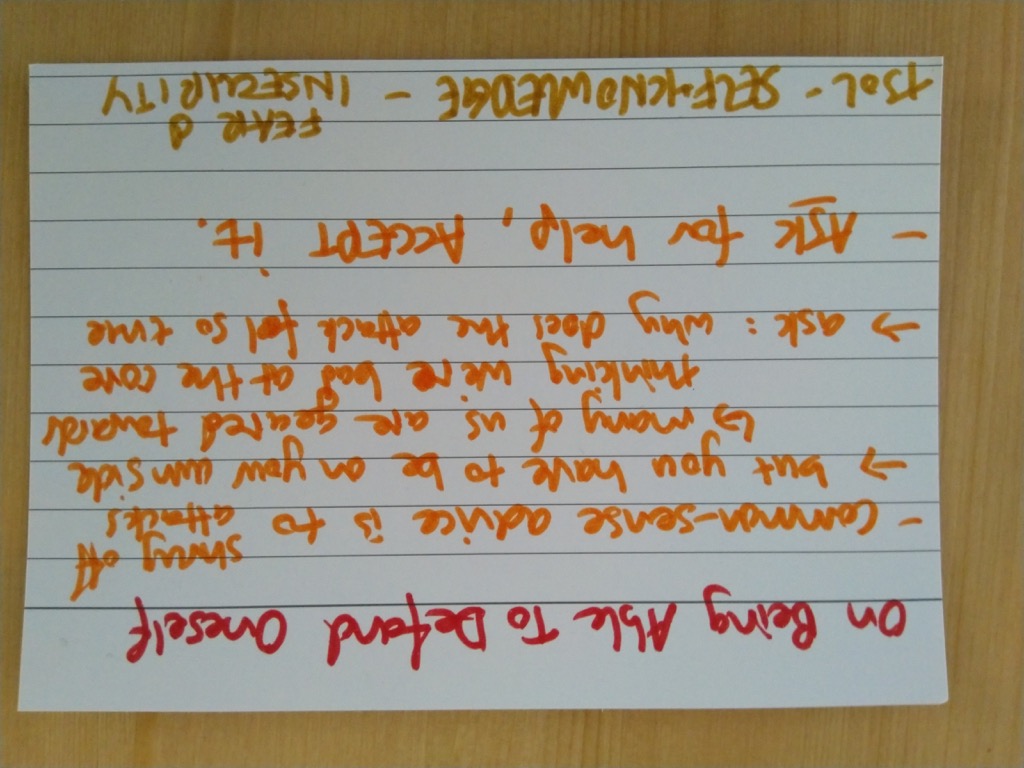 On Being Able To Defend Oneself
- Common-sense advice is to shrug off attacks
→ but you have to be on your own side
↳ many of us are geared towards
thinking we're bad at the core
→ ask: why does the attack feel so true
- Ask for help, ACCEPT it.
TSOL - SELF-KNOWLEDGE - FEAR &
INSECURITY